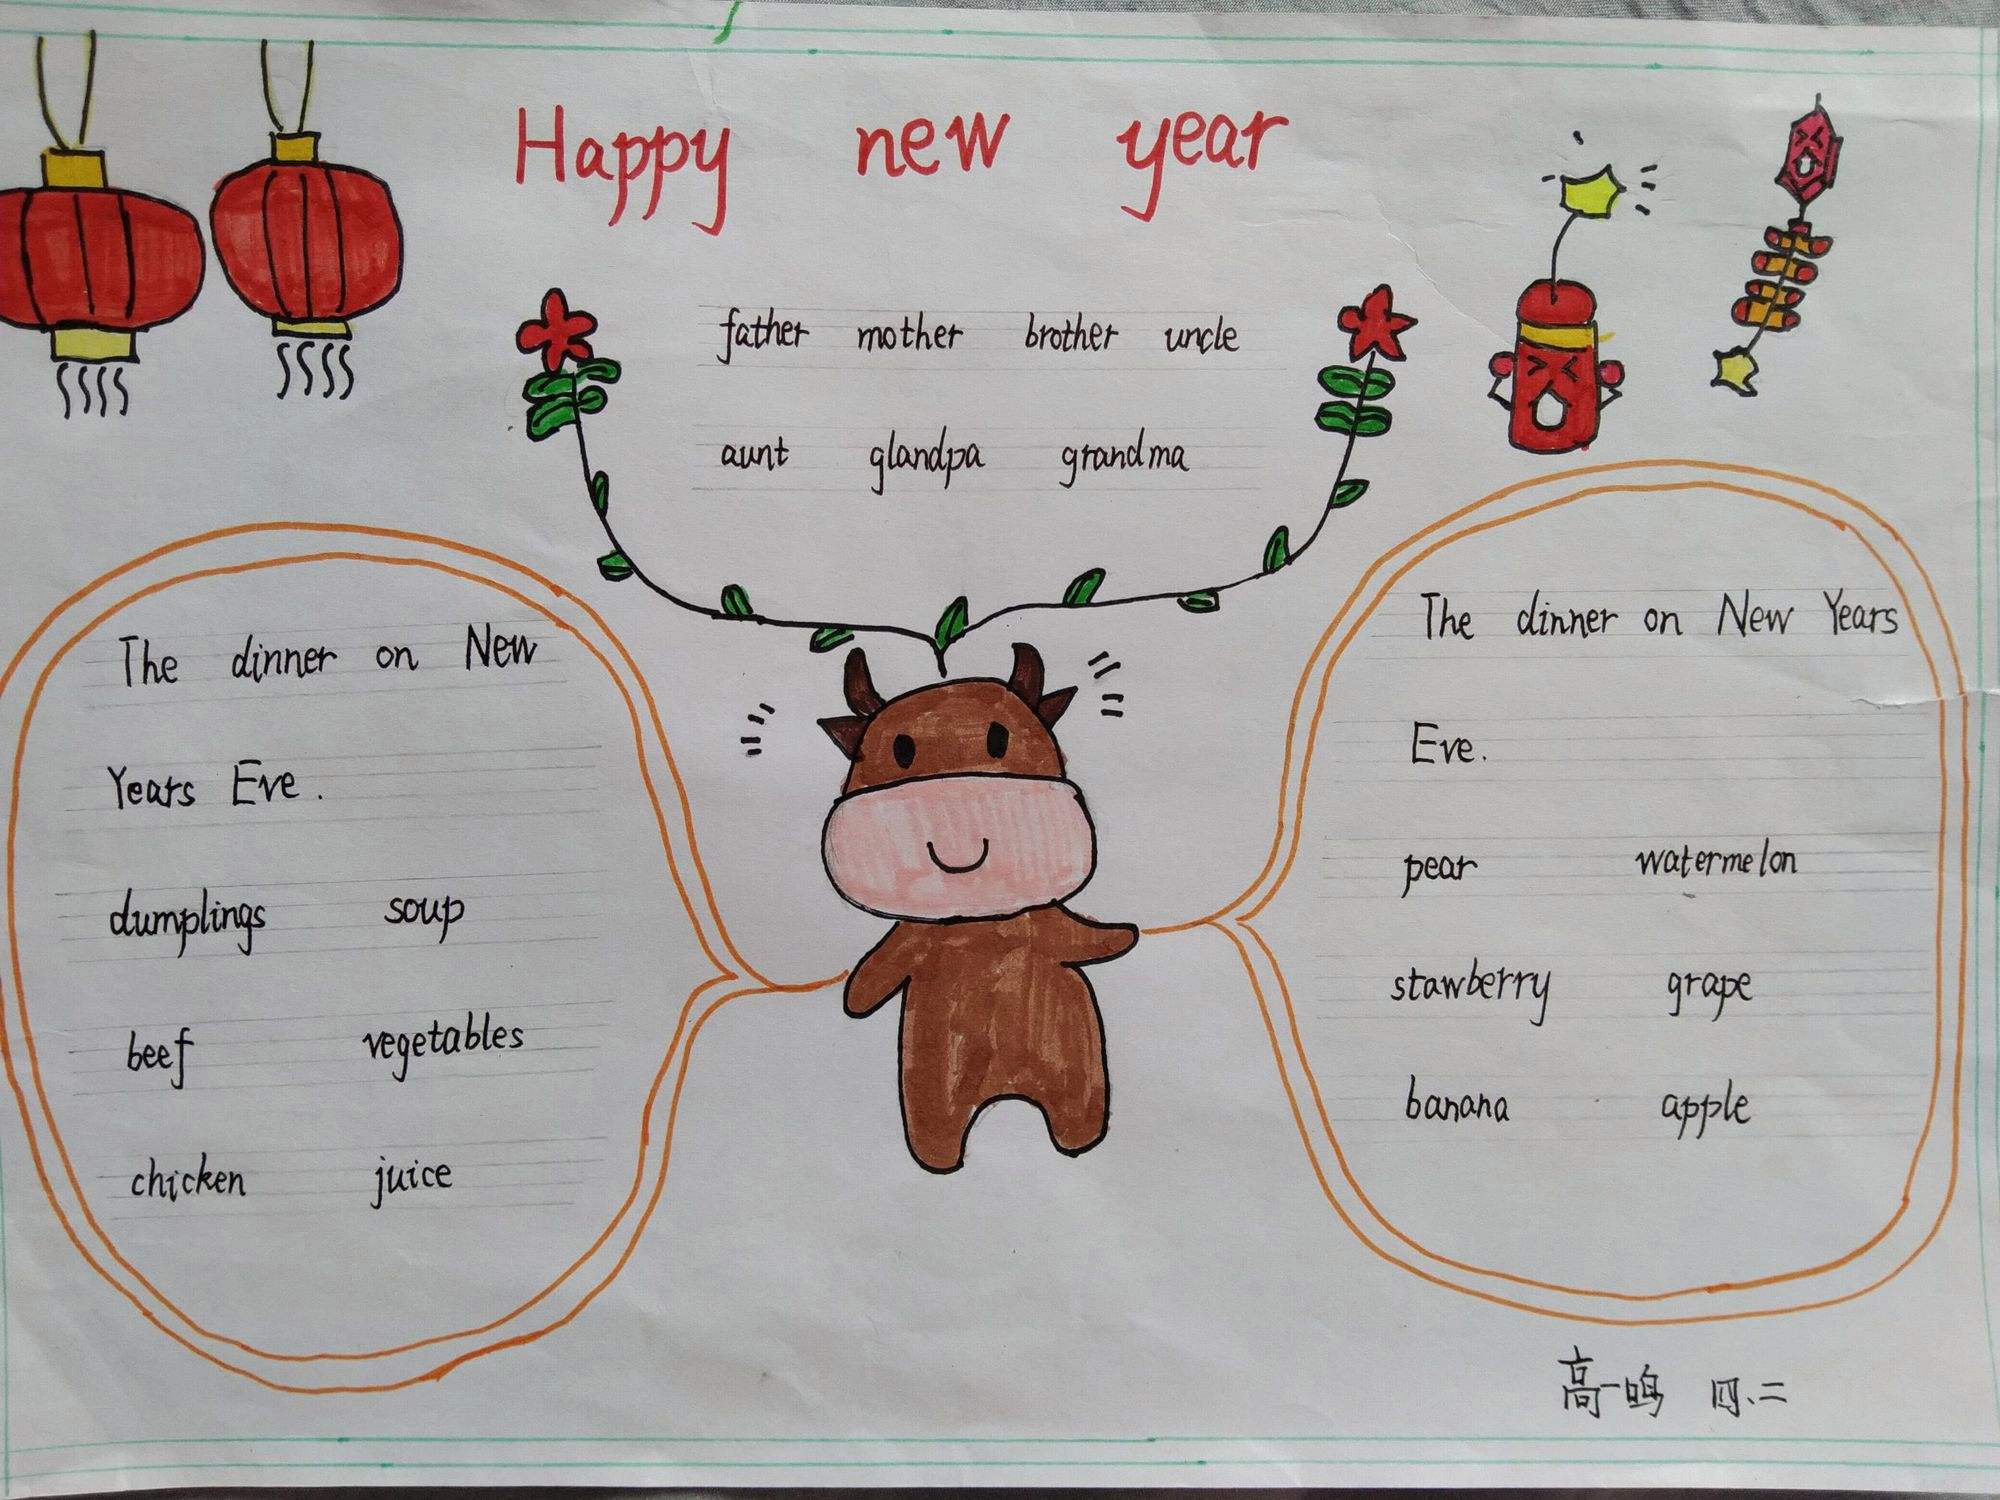 Happy new year
father mother brother uncle
aunt glandpa grandma
The dinner on New
Years Eve.
dumplings soup
beef vegetables
chicken juice
The dinner on New Years
Eve.
pear watermelon
stawberry grape
banana apple
高一鸣 四、二